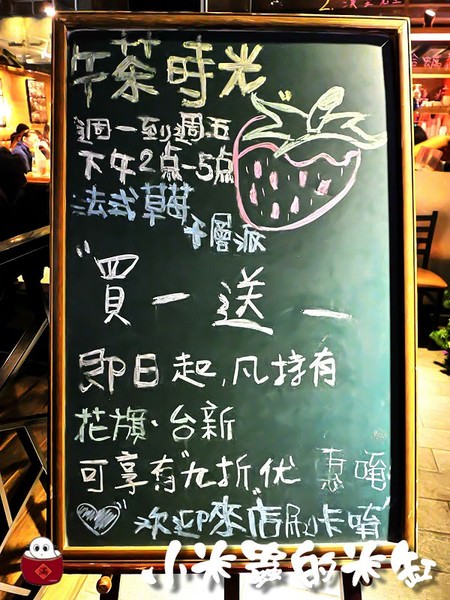 午茶時光
週一到週五
下午2点-5点
法式草莓
千層派
"買一送一
即日起,凡持有
花旗·台新
可享有"九折"优惠唷
欢迎來店刷卡唷
小米蟲的米缸